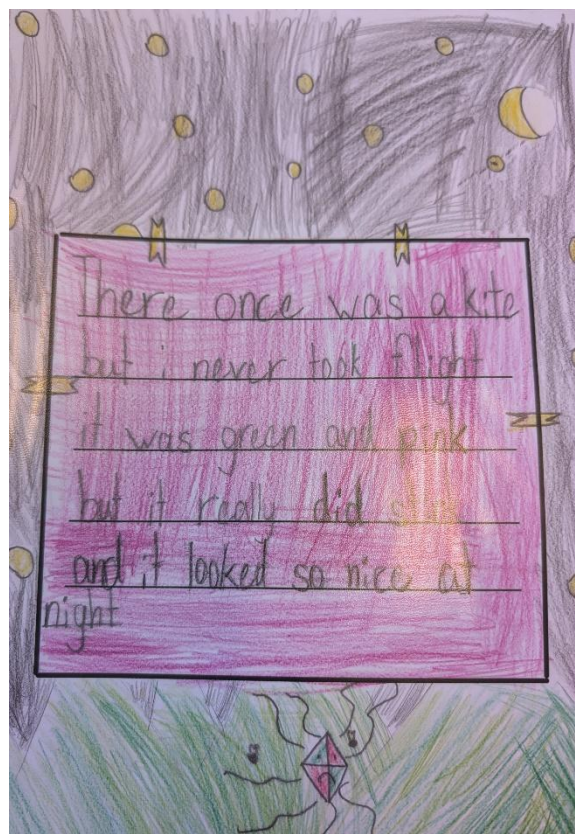 There once was a kite
but i never took flight
it was green and pink
but it really did
and it looked so nice at
night